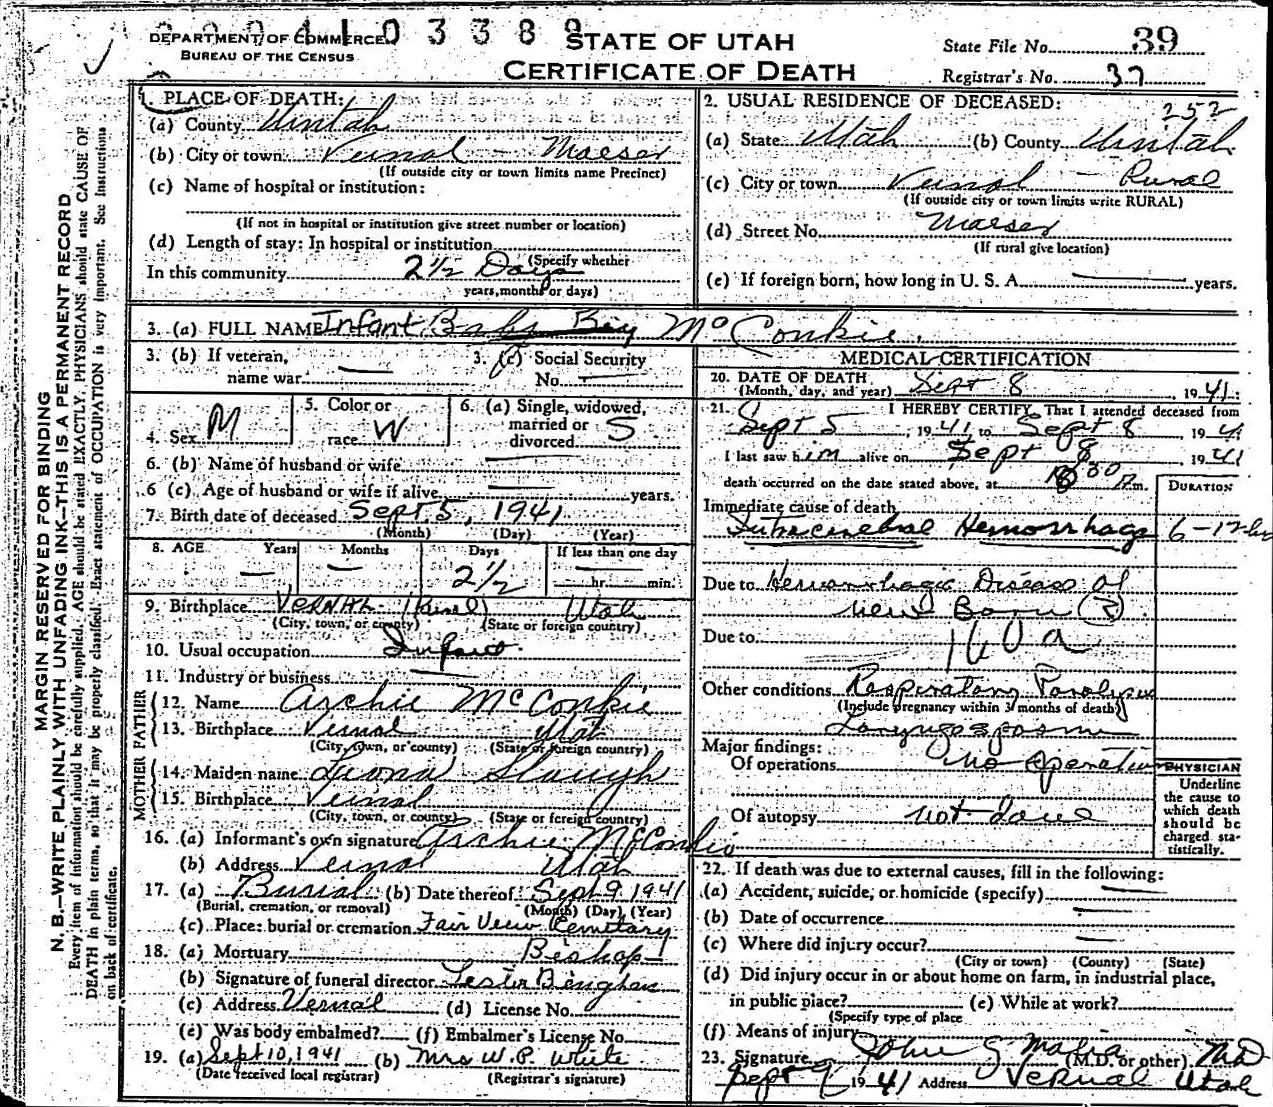 DEPARTMENT OF COMMERCE
BUREAU OF THE CENSUS
STATE OF UTAH
CERTIFICATE OF DEATH
State File No. 39
Registrar's No. 37
MARGIN RESERVED FOR BINDING
N. B.—WRITE PLAINLY WITH UNFADING INK—THIS IS A PERMANENT RECORD
Every item of information should be carefully supplied. AGE should be stated EXACTLY. PHYSICIANS should state CAUSE OF
DEATH in plain terms, so that it may be properly classified. Exact statement of OCCUPATION is very important. See Instructions
on back of certificate.
1. PLACE OF DEATH:
(a) County Uintah
(b) City or town Vernal - Maeser
(If outside city or town limits name Precinct)
(c) Name of hospital or institution:
(If not in hospital or institution give street number or location)
(d) Length of stay: In hospital or institution
(Specify whether
In this community 2 1/2 Days
years, months or days)
2. USUAL RESIDENCE OF DECEASED: 252
(a) State Utah (b) County Uintah
(c) City or town Vernal - Rural
(If outside city or town limits write RURAL)
(d) Street No. Maeser
(If rural give location)
(e) If foreign born, how long in U. S. A. — years.
3. (a) FULL NAME Infant Baby Boy McConkie
3. (b) If veteran, name war —
3. (c) Social Security No. —
4. Sex M
5. Color or race W
6. (a) Single, widowed, married or divorced S
6. (b) Name of husband or wife —
6 (c) Age of husband or wife if alive — years.
7. Birth date of deceased Sept. 5, 1941
(Month) (Day) (Year)
8. AGE Years Months Days If less than one day
— — 2 1/2 hr. min.
9. Birthplace Vernal (Rural) Utah
(City, town, or county) (State or foreign country)
10. Usual occupation Infant
11. Industry or business —
FATHER
12. Name Archie McConkie
13. Birthplace Vernal Utah
(City, town, or county) (State or foreign country)
MOTHER
14. Maiden name Leona Slaugh
15. Birthplace Vernal
(City, town, or county) (State or foreign country)
16. (a) Informant's own signature Archie McConkie
(b) Address Vernal Utah
17. (a) Burial (b) Date thereof Sept 9 1941
(Burial, cremation, or removal) (Month) (Day) (Year)
(c) Place: burial or cremation Fair View Cemetary
18. (a) Mortuary Bishop
(b) Signature of funeral director Lester Bingham
(c) Address Vernal (d) License No.
(e) Was body embalmed? (f) Embalmer's License No.
19. (a) Sept 10, 1941 (b) Mrs W. P. White
(Date received local registrar) (Registrar's signature)
MEDICAL CERTIFICATION
20. DATE OF DEATH Sept 8 1941
(Month, day, and year)
21. I HEREBY CERTIFY, That I attended deceased from
Sept 5, 1941 to Sept 8 1941
I last saw him alive on Sept 8 1941
death occurred on the date stated above, at m.
DURATION
Immediate cause of death
Intracerebral Hemorrhage 6-12 hr
Due to Hemorrhagic Disease of
new Born (?)
Due to 160 a
Other conditions Respiratory Paralysis
(Include pregnancy within 3 months of death)
Laryngospasm
Major findings:
Of operations no operation
Of autopsy not done
PHYSICIAN
Underline
the cause to
which death
should be
charged sta-
tistically.
22. If death was due to external causes, fill in the following:
(a) Accident, suicide, or homicide (specify) —
(b) Date of occurrence —
(c) Where did injury occur? —
(City or town) (County) (State)
(d) Did injury occur in or about home on farm, in industrial place,
in public place? (e) While at work?
(Specify type of place
(f) Means of injury
23. Signature John G (M.D. or other) MD
Sept 1941 Address Vernal Utah